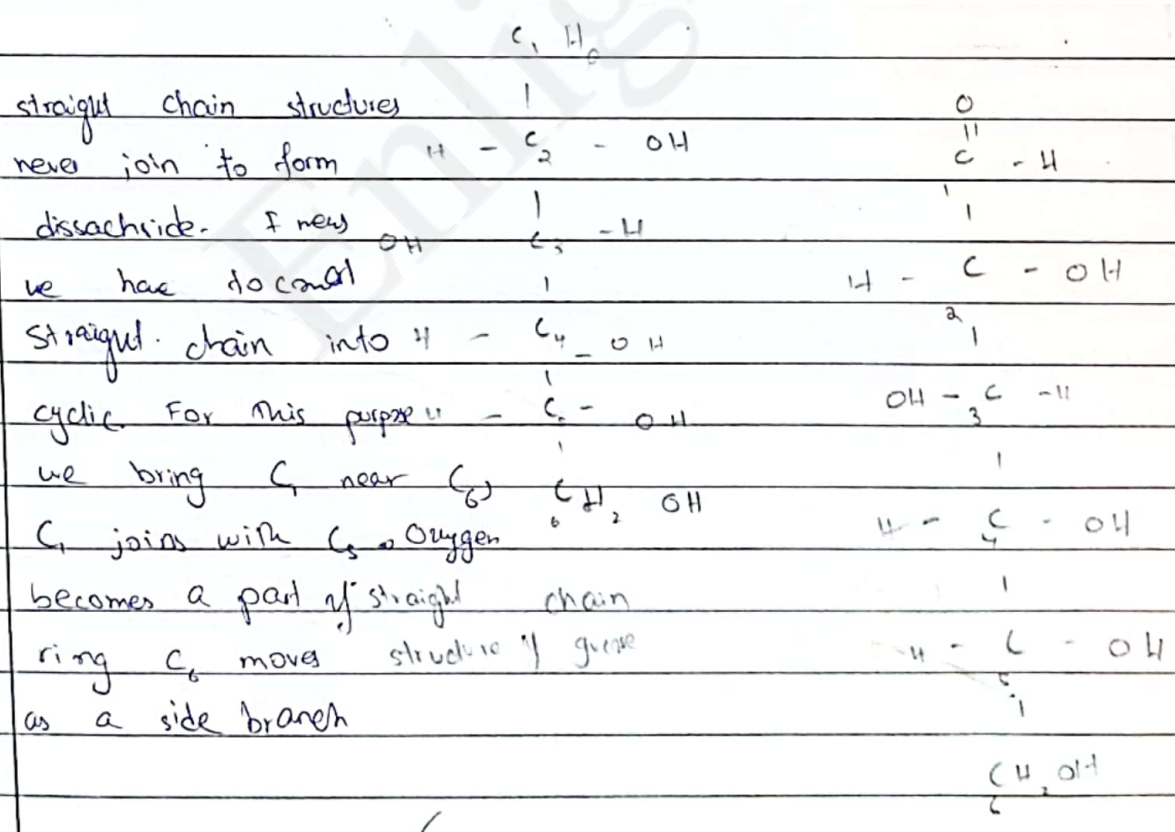 C₁ H O
straight chain structures
never join to form
dissachride. I
we have to
straight. chain into
cyclic. For this purpose
we bring C₁ near C₆,
C₁ joins with C₅. Oxygen
becomes a part of
ring C₆ moves
as a side branch
|
H - C₂ - OH
|
OH C₃ - H
|
H - C₄ - OH
|
H - C - OH
|
C₆H₂ OH
straight chain
structure of
O
||
C - H
1 |
H - C - OH
2 |
OH - C - H
3
|
H - C - OH
4
|
H - C - OH
5 |
CH₂OH
6
Enlig